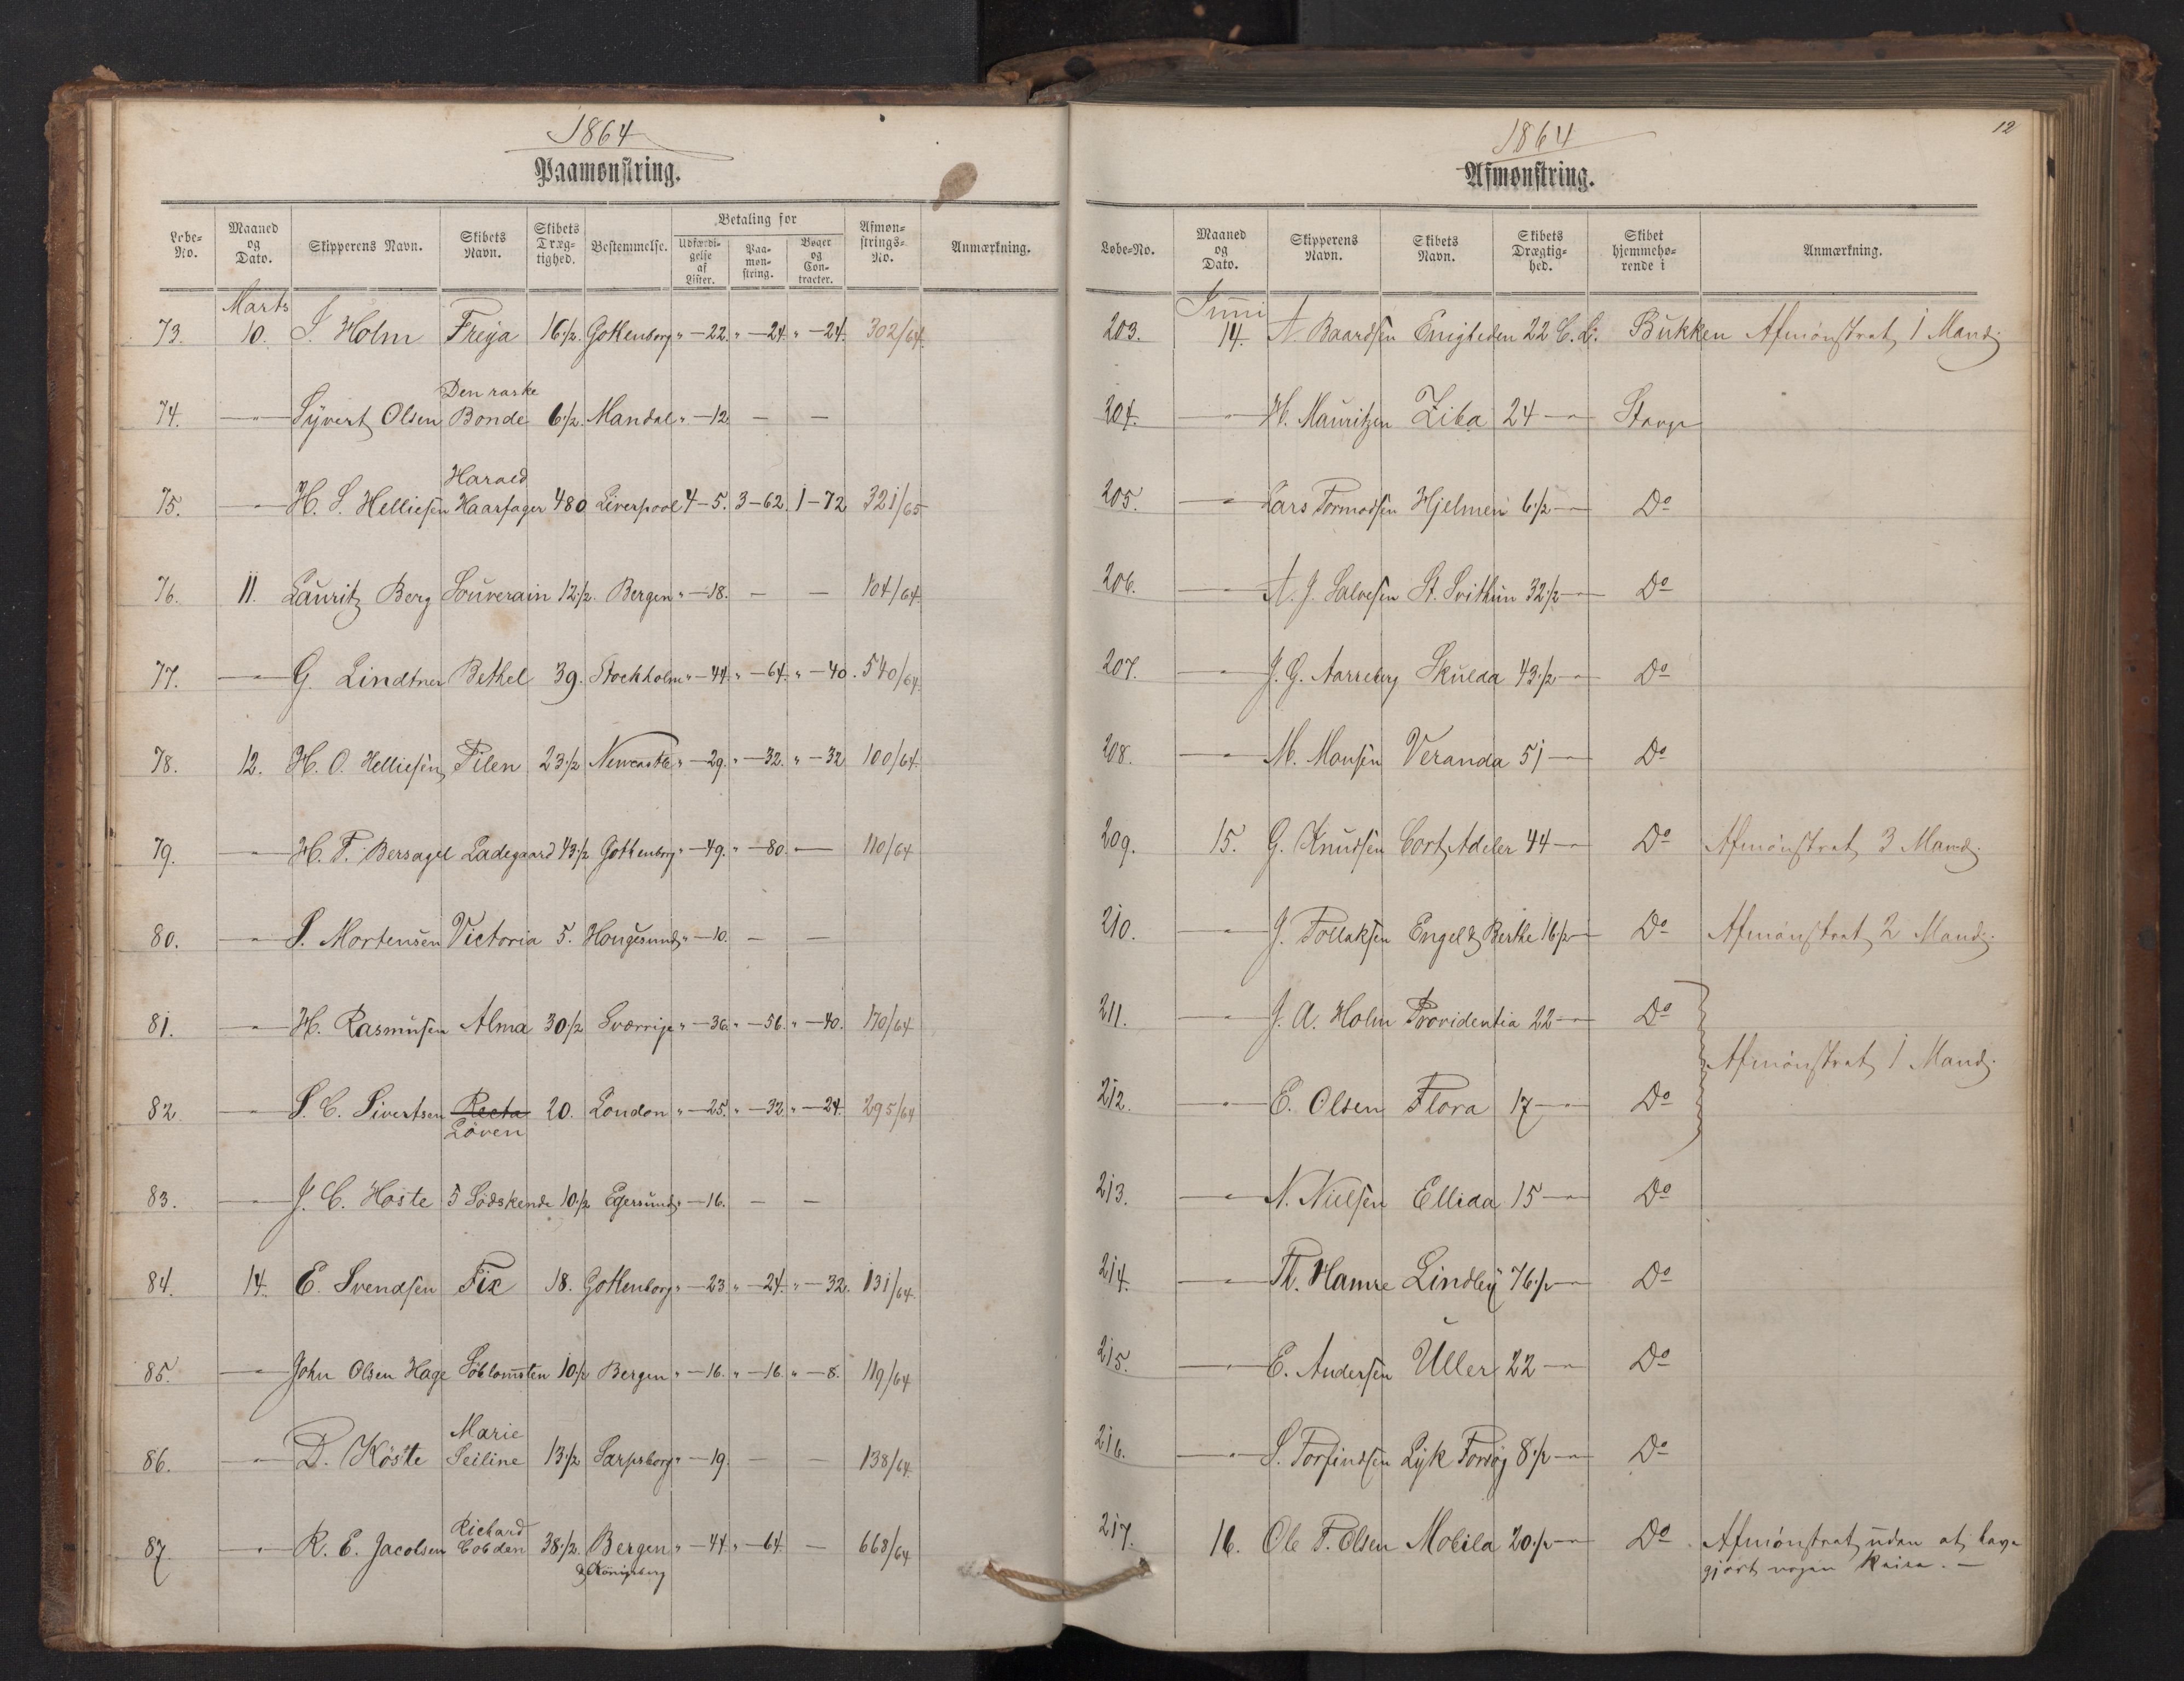 1864
Paamønstring.
Løbe-No. Maaned og Dato. Skipperens Navn. Skibets Navn. Skibets Dræg-tighed. Bestemmelse. Betaling for Udfærdi-gelse af Lister. Paa-møn-string. Bøger og Con-tracter. Afmøn-strings-No. Anmærkning.
Marts
73. 10. S. Holm Freya 16 1/2. Gothenborg " — 22. " — 24. " — 24. 302/64.
Den raske
74. — " — Syvert Olsen Bonde 6 1/2. Mandal " — 12 — —
Harald
75. — " — H. S. Helliesen Haarfager 480 Liverpool 4 — 5. 3 — 62. 1 — 72 321/65
76. 11. Lauritz Berg Souverain 12 1/2. Bergen " — 18. — — 104/64.
77. — " — G. Lindtner Bethel 39. Stockholm " — 44. " — 64. " — 40. 540/64.
78. 12. H. O. Helliesen Pilen 23 1/2 Newcastle " — 29. " — 32. " — 32 100/64.
79. — " — H. T. Bersagel Ladegaard 43 1/2 Gothenborg " — 49. " — 80. — 110/64
80. — " — S. Mortensen Victoria 5. Hougesund " — 10. — —
81. — " — H. Rasmusen Alma 30 1/2 Sverrige " — 36. " — 56. " — 40. 170/64
82. — " — S. C. Sivertsen Recta 20. London " — 25. " — 32 " — 24. 295/64
Löven
83. — " — J. C. Höste 5 Södskende 10 1/2 Egersund " — 16. — —
84. 14. E. Svendsen Fix 18. Gothenborg " — 23 " — 24. " — 32. 131/64.
85. — " — John Olsen Hage Söblomsten 10 1/2 Bergen " — 16. " — 16. " — 8. 119/64
Marie
86. — " — D. Köste Seiline 13 1/2 Sarpsborg " — 19. — — 138/64.
Richard
87 — " — R. E. Jacobsen Cobden 38 1/2. Bergen " — 44. " — 64. — 668/64
& Königsberg
1864
12
Afmønstring.
Løbe-No. Maaned og Dato. Skipperens Navn. Skibets Navn. Skibets Drægtig-hed. Skibet hjemmehø-rende i Anmærkning.
Juni
203. 14. A. Baardsen Enigheden 22 C. L. Bukken Afmönstrat 1 Mand.
204. — " — H. Mauritzen Ziba 24 — " — Stavgr
205. — " — Lars Tormodsen Hjelmen 6 1/2 — " — Do
206. — " — A. J. Salvesen St. Svithun 32 1/2 — " — Do
207. — " — J. G. Aarreberg Skulda 43 1/2 — " — Do
208. — " — M. Monsen Veranda 51 — " — Do
209. 15. G. Knudsen Cort Adeler 44 — " — Do Afmönstrat 3 Mand.
210. — " — J. Tollaksen Engel & Berthe 16 1/2 — " — Do Afmönstrat 2 Mand.
211. — " — J. A. Holm Providentia 22 — " — Do
Afmönstrat 1 Mand.
212. — " — E. Olsen Flora 17 — " — Do
213. — " — N. Nielsen Ellida 15 — " — Do
214. — " — Th. Hamre Lindley 76 1/2 — " — Do
215. — " — E. Andersen Uller 22 — " — Do
216. — " — S. Torfindsen Lyk Forsög 8 1/2 — " — Do
217. 16. Ole T. Olsen Mobila 20 1/2 — " — Do Afmönstrat uden at have
gjort nogen Reise. —